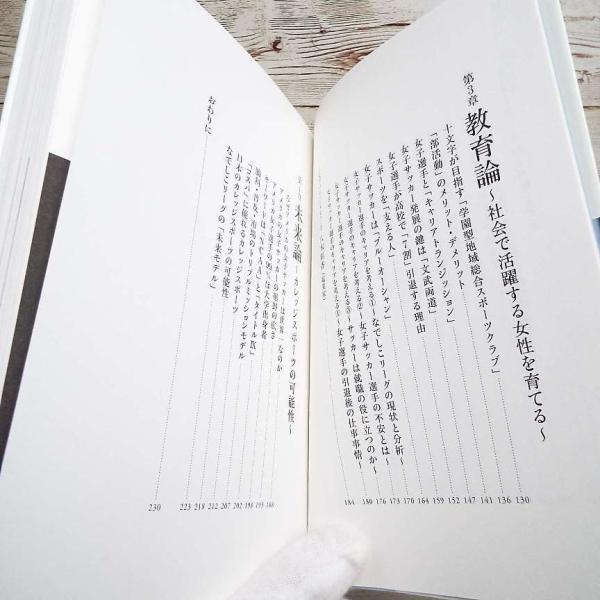 第3章 教育論 ～社会で活躍する女性を育てる～ 130
十文字が目指す「学園型地域総合スポーツクラブ」 136
「部活動」のメリット・デメリット 141
女子選手と「キャリアトランジッション」 147
女子サッカー発展の鍵は「文武両道」 152
女子選手が高校で「7割」引退する理由 159
スポーツを「支える人」 164
女子サッカーは「ブルーオーシャン」 170
女子サッカー選手のキャリアを考える①～なでしこリーグの現状と分析～ 173
女子サッカー選手のキャリアを考える②～女子サッカー選手の不安とは～ 176
女子サッカー選手のキャリアを考える③～サッカーは就職の役に立つのか～ 180
184
未来論 ～カレッジスポーツの可能性～ 188
なぜアメリカの女子サッカーは世界一なのか 193
198
202
207
「コスパ」に優れるカレッジスポーツ 212
日本のカレッジスポーツの可能性 218
なでしこリーグの「未来モデル」 223
おわりに 230